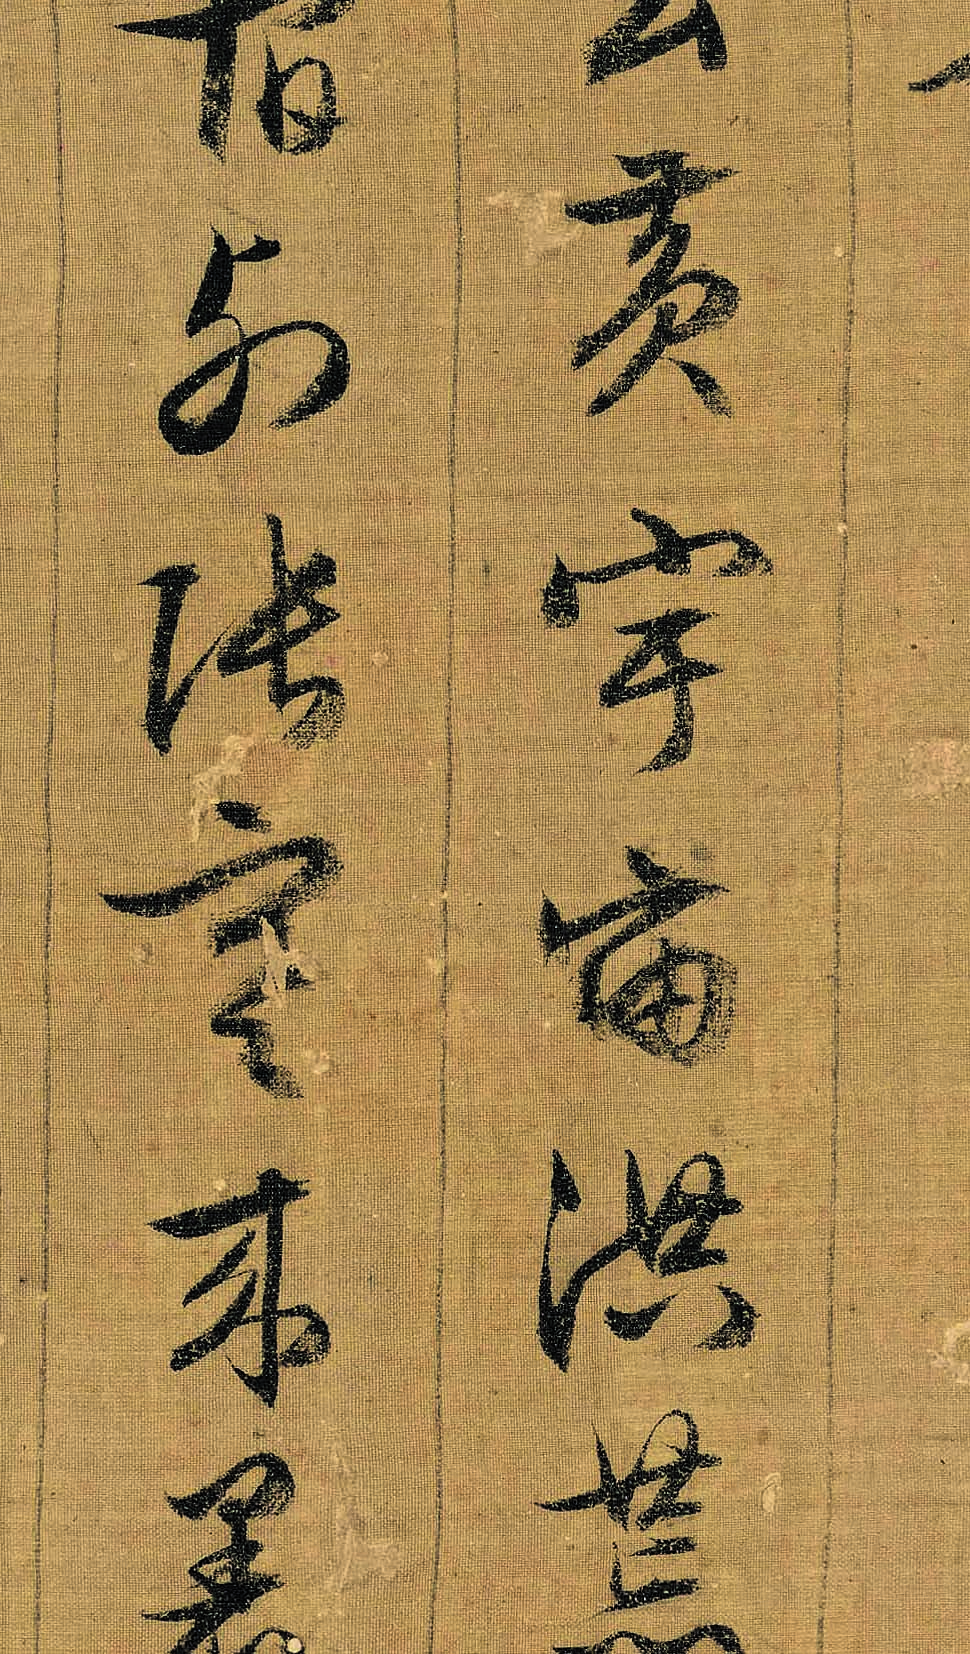 玄黄宇宙洪荒
宿列張寒来暑